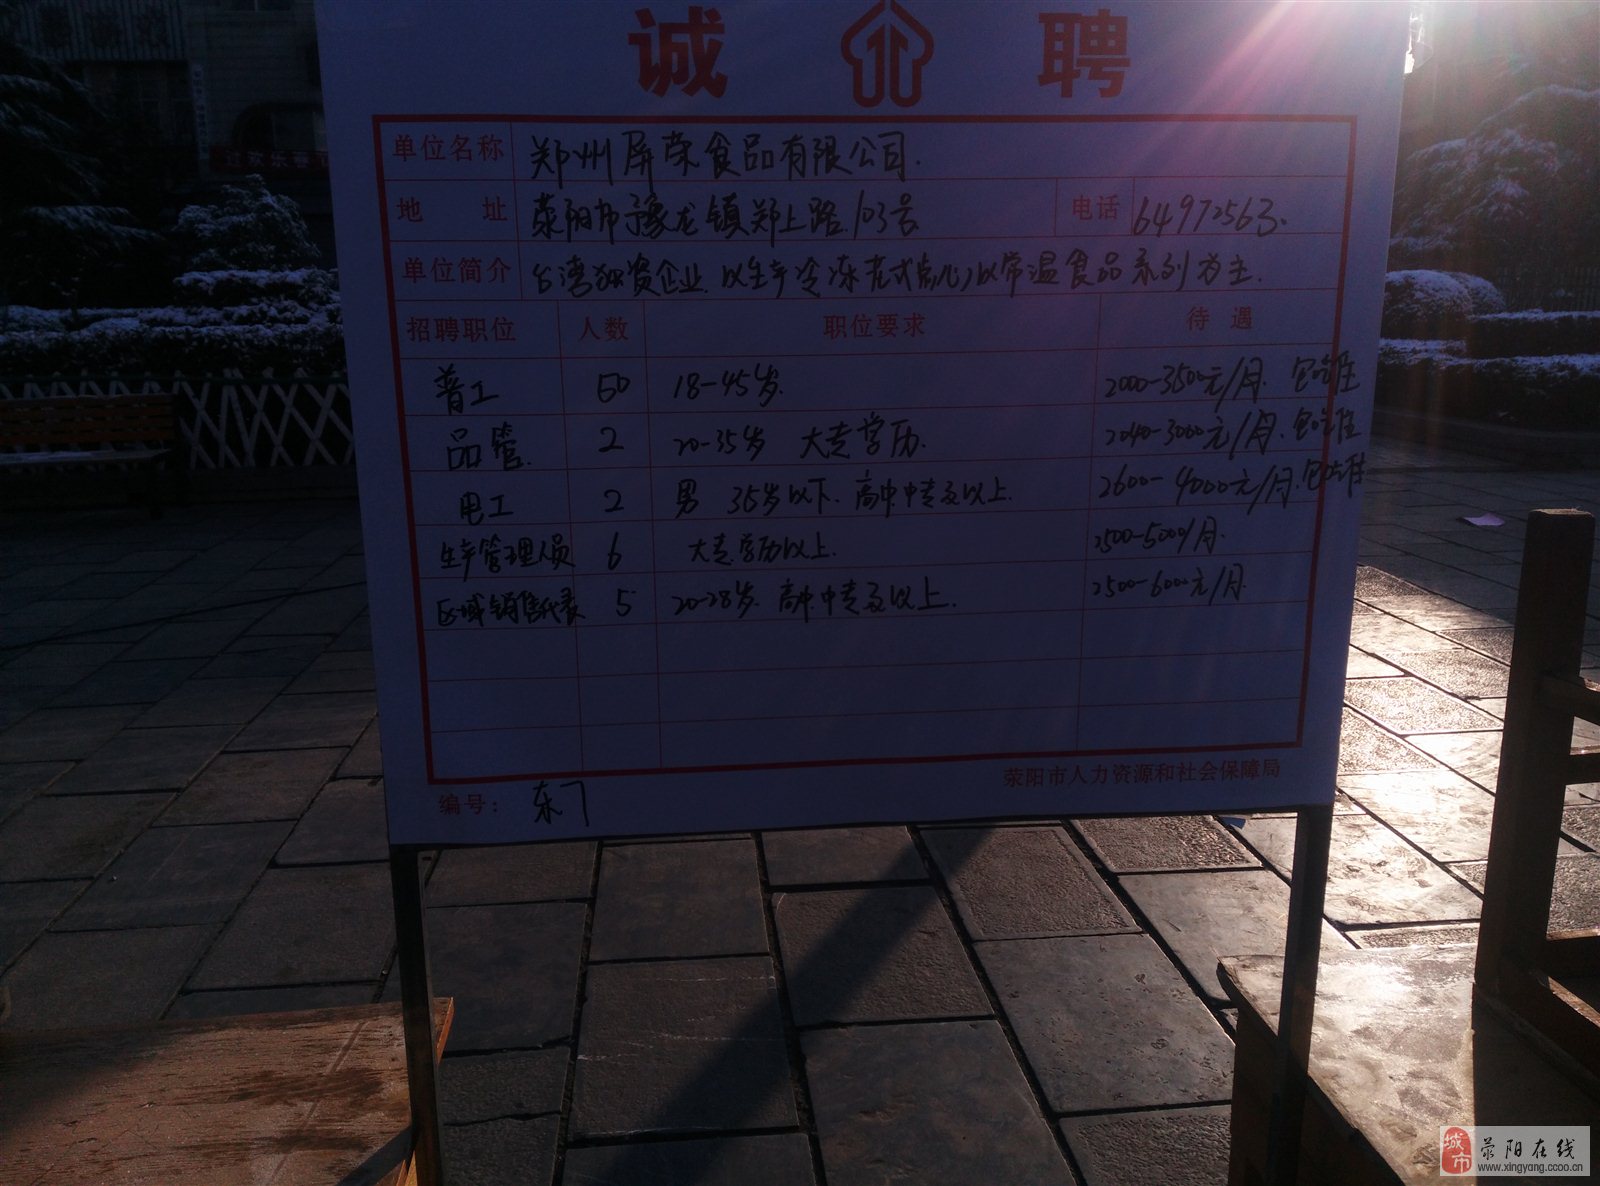 诚 聘
单位名称 郑州屏荣食品有限公司.
地 址 荥阳市豫龙镇郑上路103号 电话 64972563.
单位简介 台湾独资企业.以生产冷冻花式点心,以常温食品系列为主.
招聘职位 人数 职位要求 待 遇
普工 50 18-45岁. 2000-3500元/月. 包吃住
品管. 2 20-35岁 大专学历. 2040-3000元/月. 包吃住
电工 2 男 35岁以下. 高中.中专及以上. 2600-4000元/月.包吃住
生产管理人员 6 大专学历以上. 3500-5000/月.
区域销售代表 5 20-28岁. 高中.中专及以上. 2500-6000元/月.
荥阳市人力资源和社会保障局
编号: 东门
城市
荥阳在线
www.xingyang.ccoo.cn